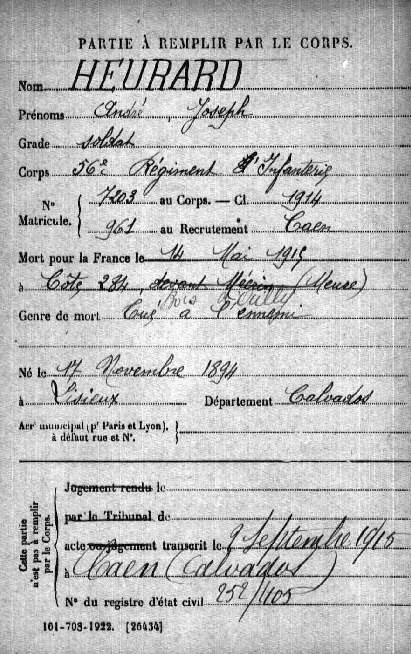 PARTIE À REMPLIR PAR LE CORPS.
Nom HEURARD
Prénoms André, Joseph
Grade soldat
Corps 56e Régiment d'Infanterie
N° Matricule. { 7203 au Corps. — Cl. 1914
961 au Recrutement Caen
Mort pour la France le 14 Mai 1915
à Cote 284 devant (Meuse)
Bois d'Ailly
Genre de mort Tué à l'ennemi
Né le 17 Novembre 1894
à Lisieux Département Calvados
Arr† municipal (p† Paris et Lyon), à défaut rue et N°. }
Cette partie n'est pas à remplir par le Corps.
Jugement rendu le
par le Tribunal de
acte ou jugement transcrit le 9 Septembre 1915
à Caen (Calvados)
N° du registre d'état civil 252/105
101-708-1922. [26434]